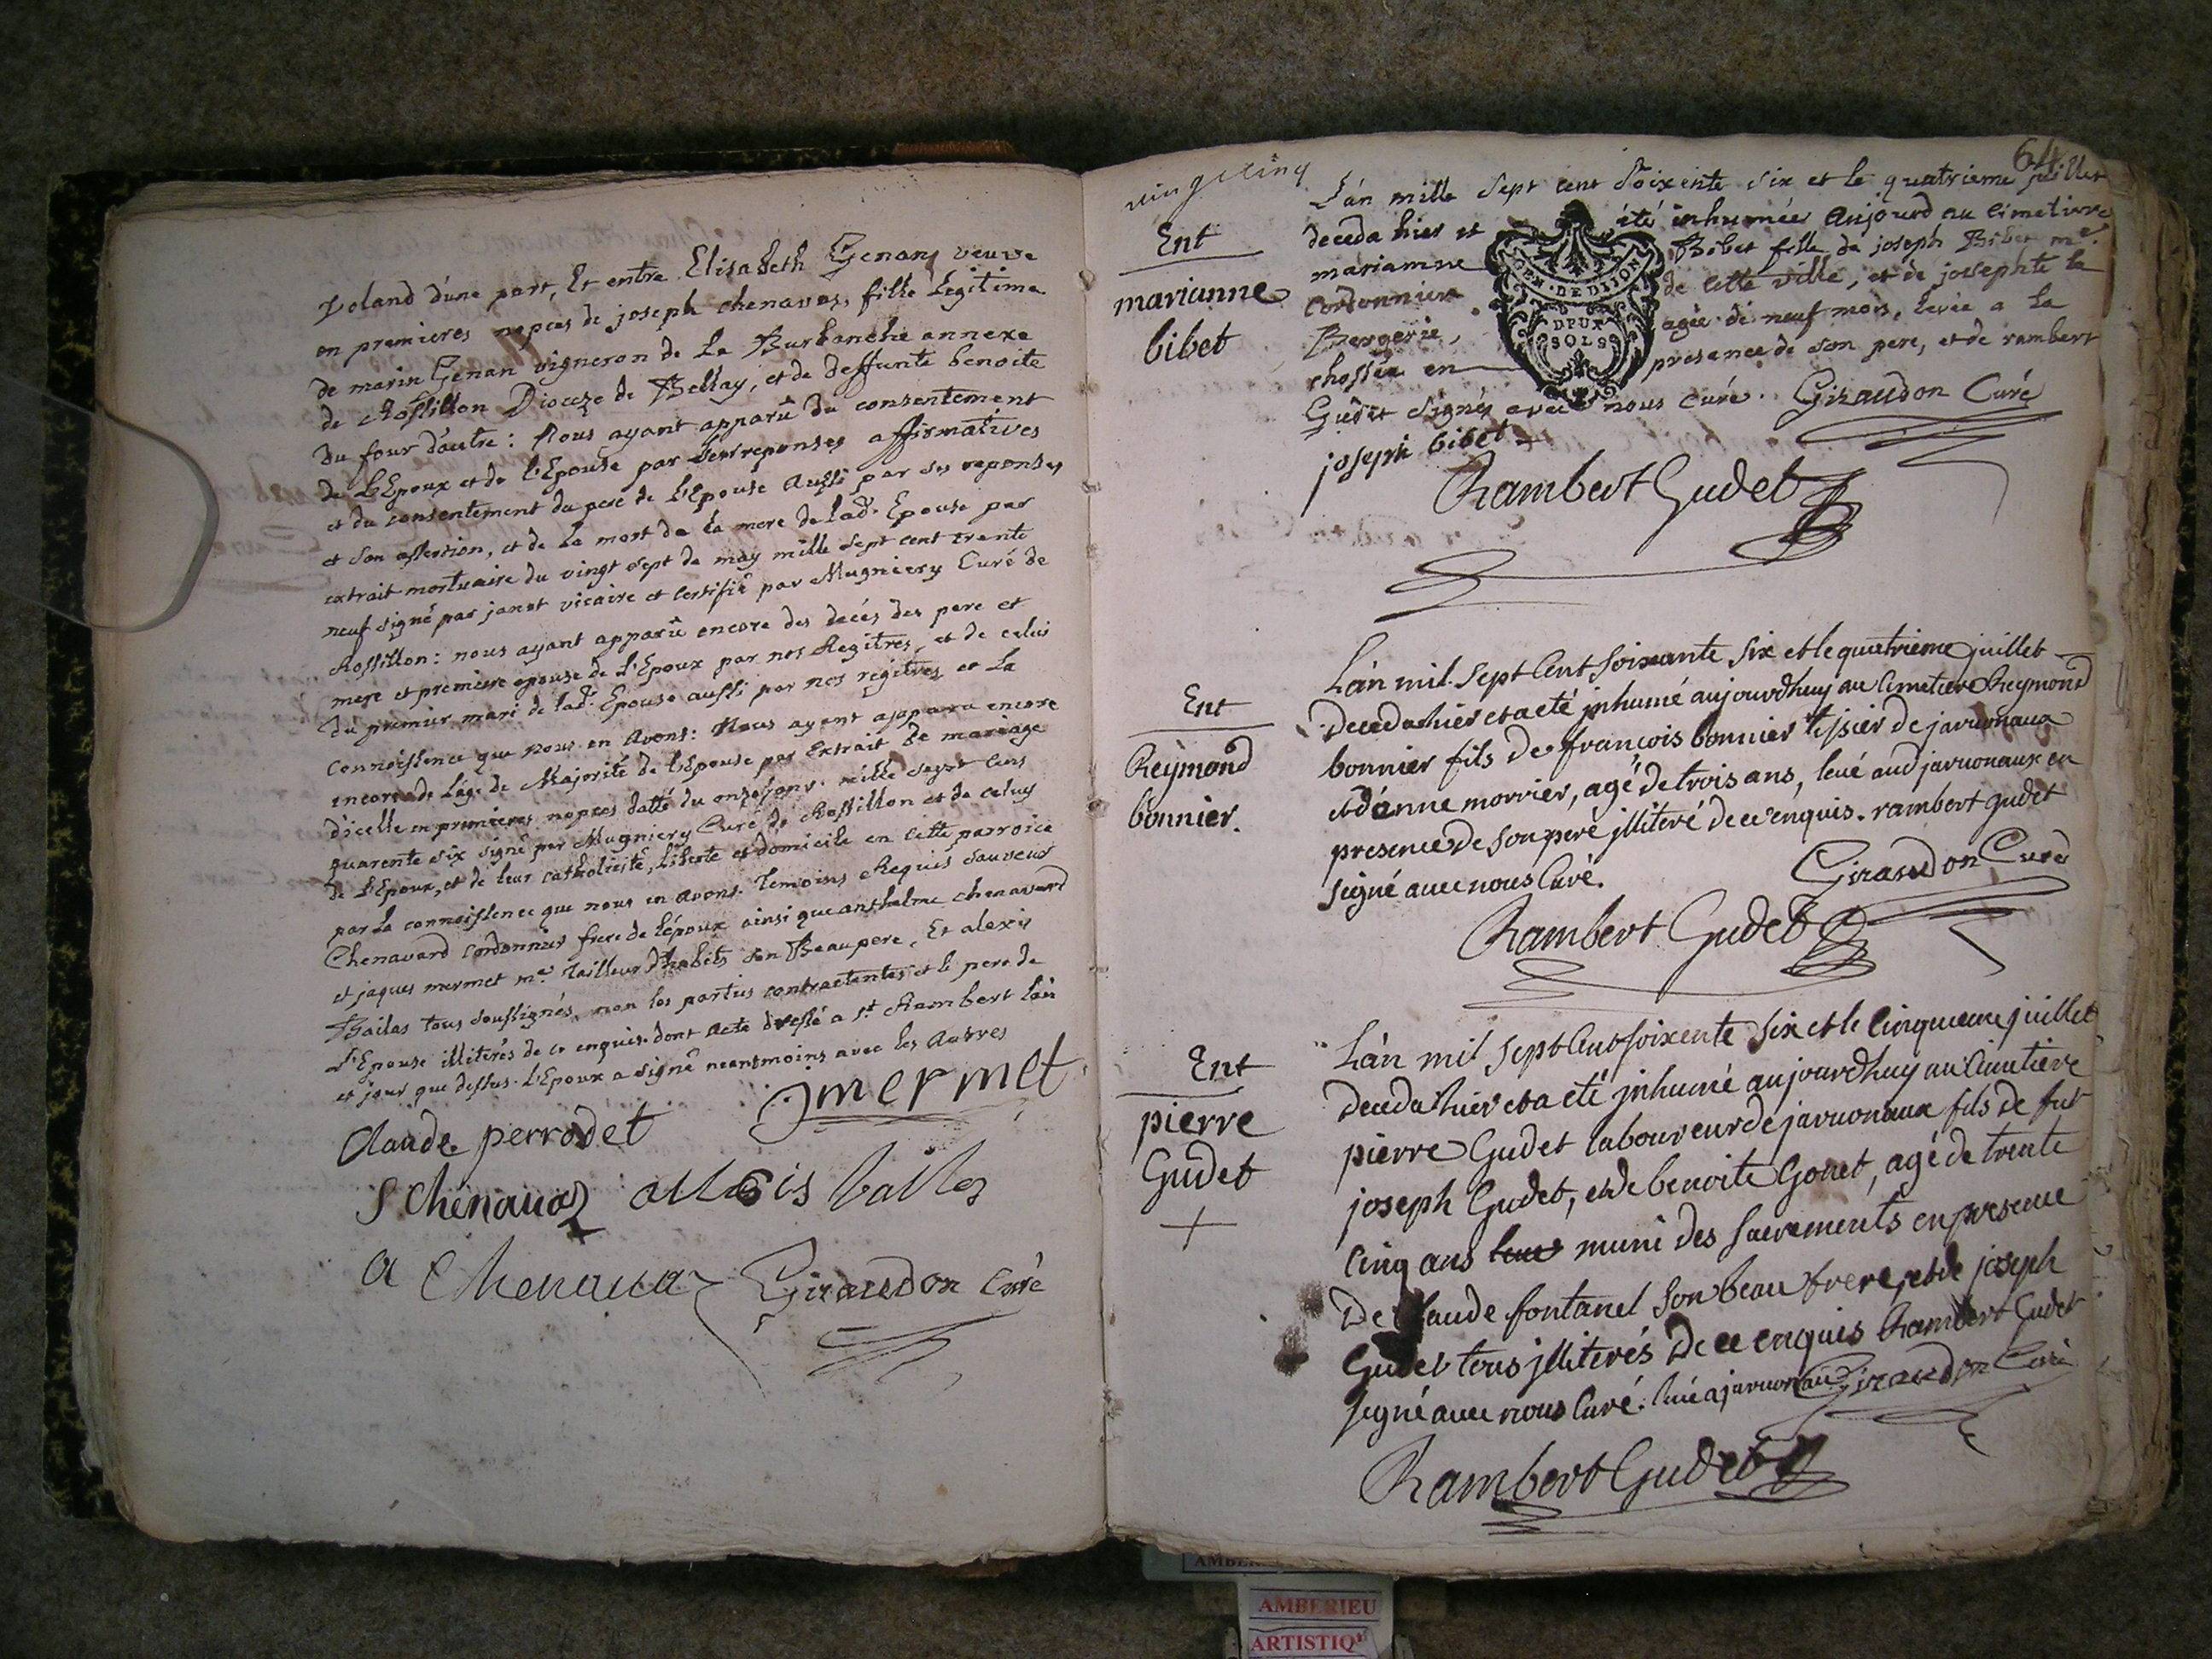 Voland d'une part, Et entre Elisabeth Genan veuve
en premieres nopces de joseph chenavas, fille Legitime
de marin Genan vigneron de La Burbanche annexe
de Rossillon Dioceze de Bellay, et de deffunte benoite
du four d'autre : Nous ayant apparû du consentement
de L'Epoux et de l'Epouse par leurs reponses affirmatives
et du consentement du pere de L'Epouse Aussi par ses reponses
et son assertion, et de La mort de la mere de lad. Epouse par
extrait mortuaire du vingt sept de may mille sept cent trente
neuf signé par janet vicaire et certifié par Mugniery Curé de
Rossillon : nous ayant apparû encore des decés des pere et
mere et premiere epouse de L'Epoux par nos Registres, et de celui
du premier mari de lad. Epouse aussi par nos registres et La
connoissence que nous en avons : Nous ayant apparu encore
encore de L'age de Majorité de l'Epouse par Extrait de mariage
d'icelle en premieres nopces datté du onze mille sept cens
quarente six signé par Mugniery Curé de Rossillon et de celuy
de L'Epoux, et de leur catholicité, Liberté et domicile en cette parroice
par La connoissence que nous en avons. Temoins Requis sauveur
Chenavard Cordonnier frere de l'époux ainsi que anthelme chenavard
et jaques mermet me. Tailleur d'habits son Beaupere, Et alexis
Bailas tous soussignés, non les parties contractentes et le pere de
L'Epouse illiterés de ce enquis. dont Acte dressé a St. Rambert L'an
et jour que dessus. L'Epoux a signé neantmoins avec les Autres
jmermet
Claude perrodet
S chenavaz allexis bailas
a Chenavaz Giraudon Curé
64
vingt cinq
L'an mille sept cent soixente six et le quatrieme juillet
Ent
marianne
bibet
deceda hier et été inhumée Aujourd au cimetiere
mariamne Bibet fille de joseph Bibet me.
cordonnier de cette ville, et de josephte la
Bergerie, agée de neuf mois, levée a La
GEN. DE DIJON
DEUX
SOLS
chossée en presence de son pere, et de rambert
Gudet signés avec nous curé. Giraudon Curé
joseph bibet
Rambert Gudet
Ent
Reymond
bonnier.
L'an mil sept Cent soixante six et le quatrieme juillet
deceda hier et a eté jnhumé aujourdhuy au Cimetiere Reymond
bonnier fils de francois bonnier tissier de javuonaux
et d'anne morrier, agé de trois ans, levé aud javuonaux en
presence de son peré jlliteré de ce enquis. rambert gudet
signé avec nous Curé. Giraudon Curé
Rambert Gudet
Ent
pierre
Gudet
L'an mil sept Cent soixente six et le Cinquieme juillet
deceda hier et a eté jnhumé aujourdhuy au Cimetiere
pierre Gudet laboureur de javuonaux fils de fut
joseph Gudet, et de benoite Gonet, agé de trente
Cinq ans muni des sacrements en presence
De Claude fontanel son beau frere, et de joseph
Gudet tous jlliterés De ce enquis Rambert Gudet
signé avec nous Curé. levé a javuonaux Giraudon Curé
Rambert Gudet
AMBERIEU
ARTISTIQ